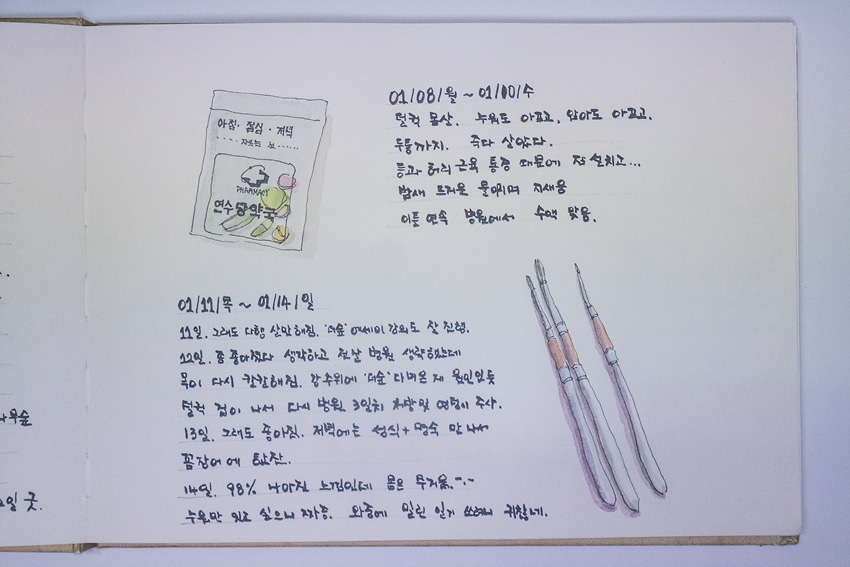 아침·점심·저녁
PHARMACY
01/08/월 ~ 01/10/수
덜컥 몸살. 누워도 아프고, 앉아도 아프고.
두통까지. 죽다 살았다.
등과 허리 근육 통증 때문에 잠 설치고...
밤새 뜨거운 물 마시며 지새움
이틀 연속 병원에서 수액 맞음.
01/11/목 ~ 01/14/일
11일. 그래도 다행 살만해짐. '더숲' 에세이 강의도 잘 진행.
12일. 좀 좋아졌다 생각하고 전날 병원 생략했는데
목이 다시 칼칼해짐. 강추위에 '더숲' 다녀온 게 원인인듯
덜컥 겁이 나서 다시 병원. 3일치 처방 및 엉덩이 주사.
13일. 그래도 좋아짐. 저녁에는 성식+명숙 만나서
꼼장어에 한잔.
14일. 98% 나아진 느낌인데 몸은 무거움.-.-
누워만 있고 싶으니 짜증. 와중에 밀린 일기 쓰려니 귀찮네.
나무숲
일 굿.